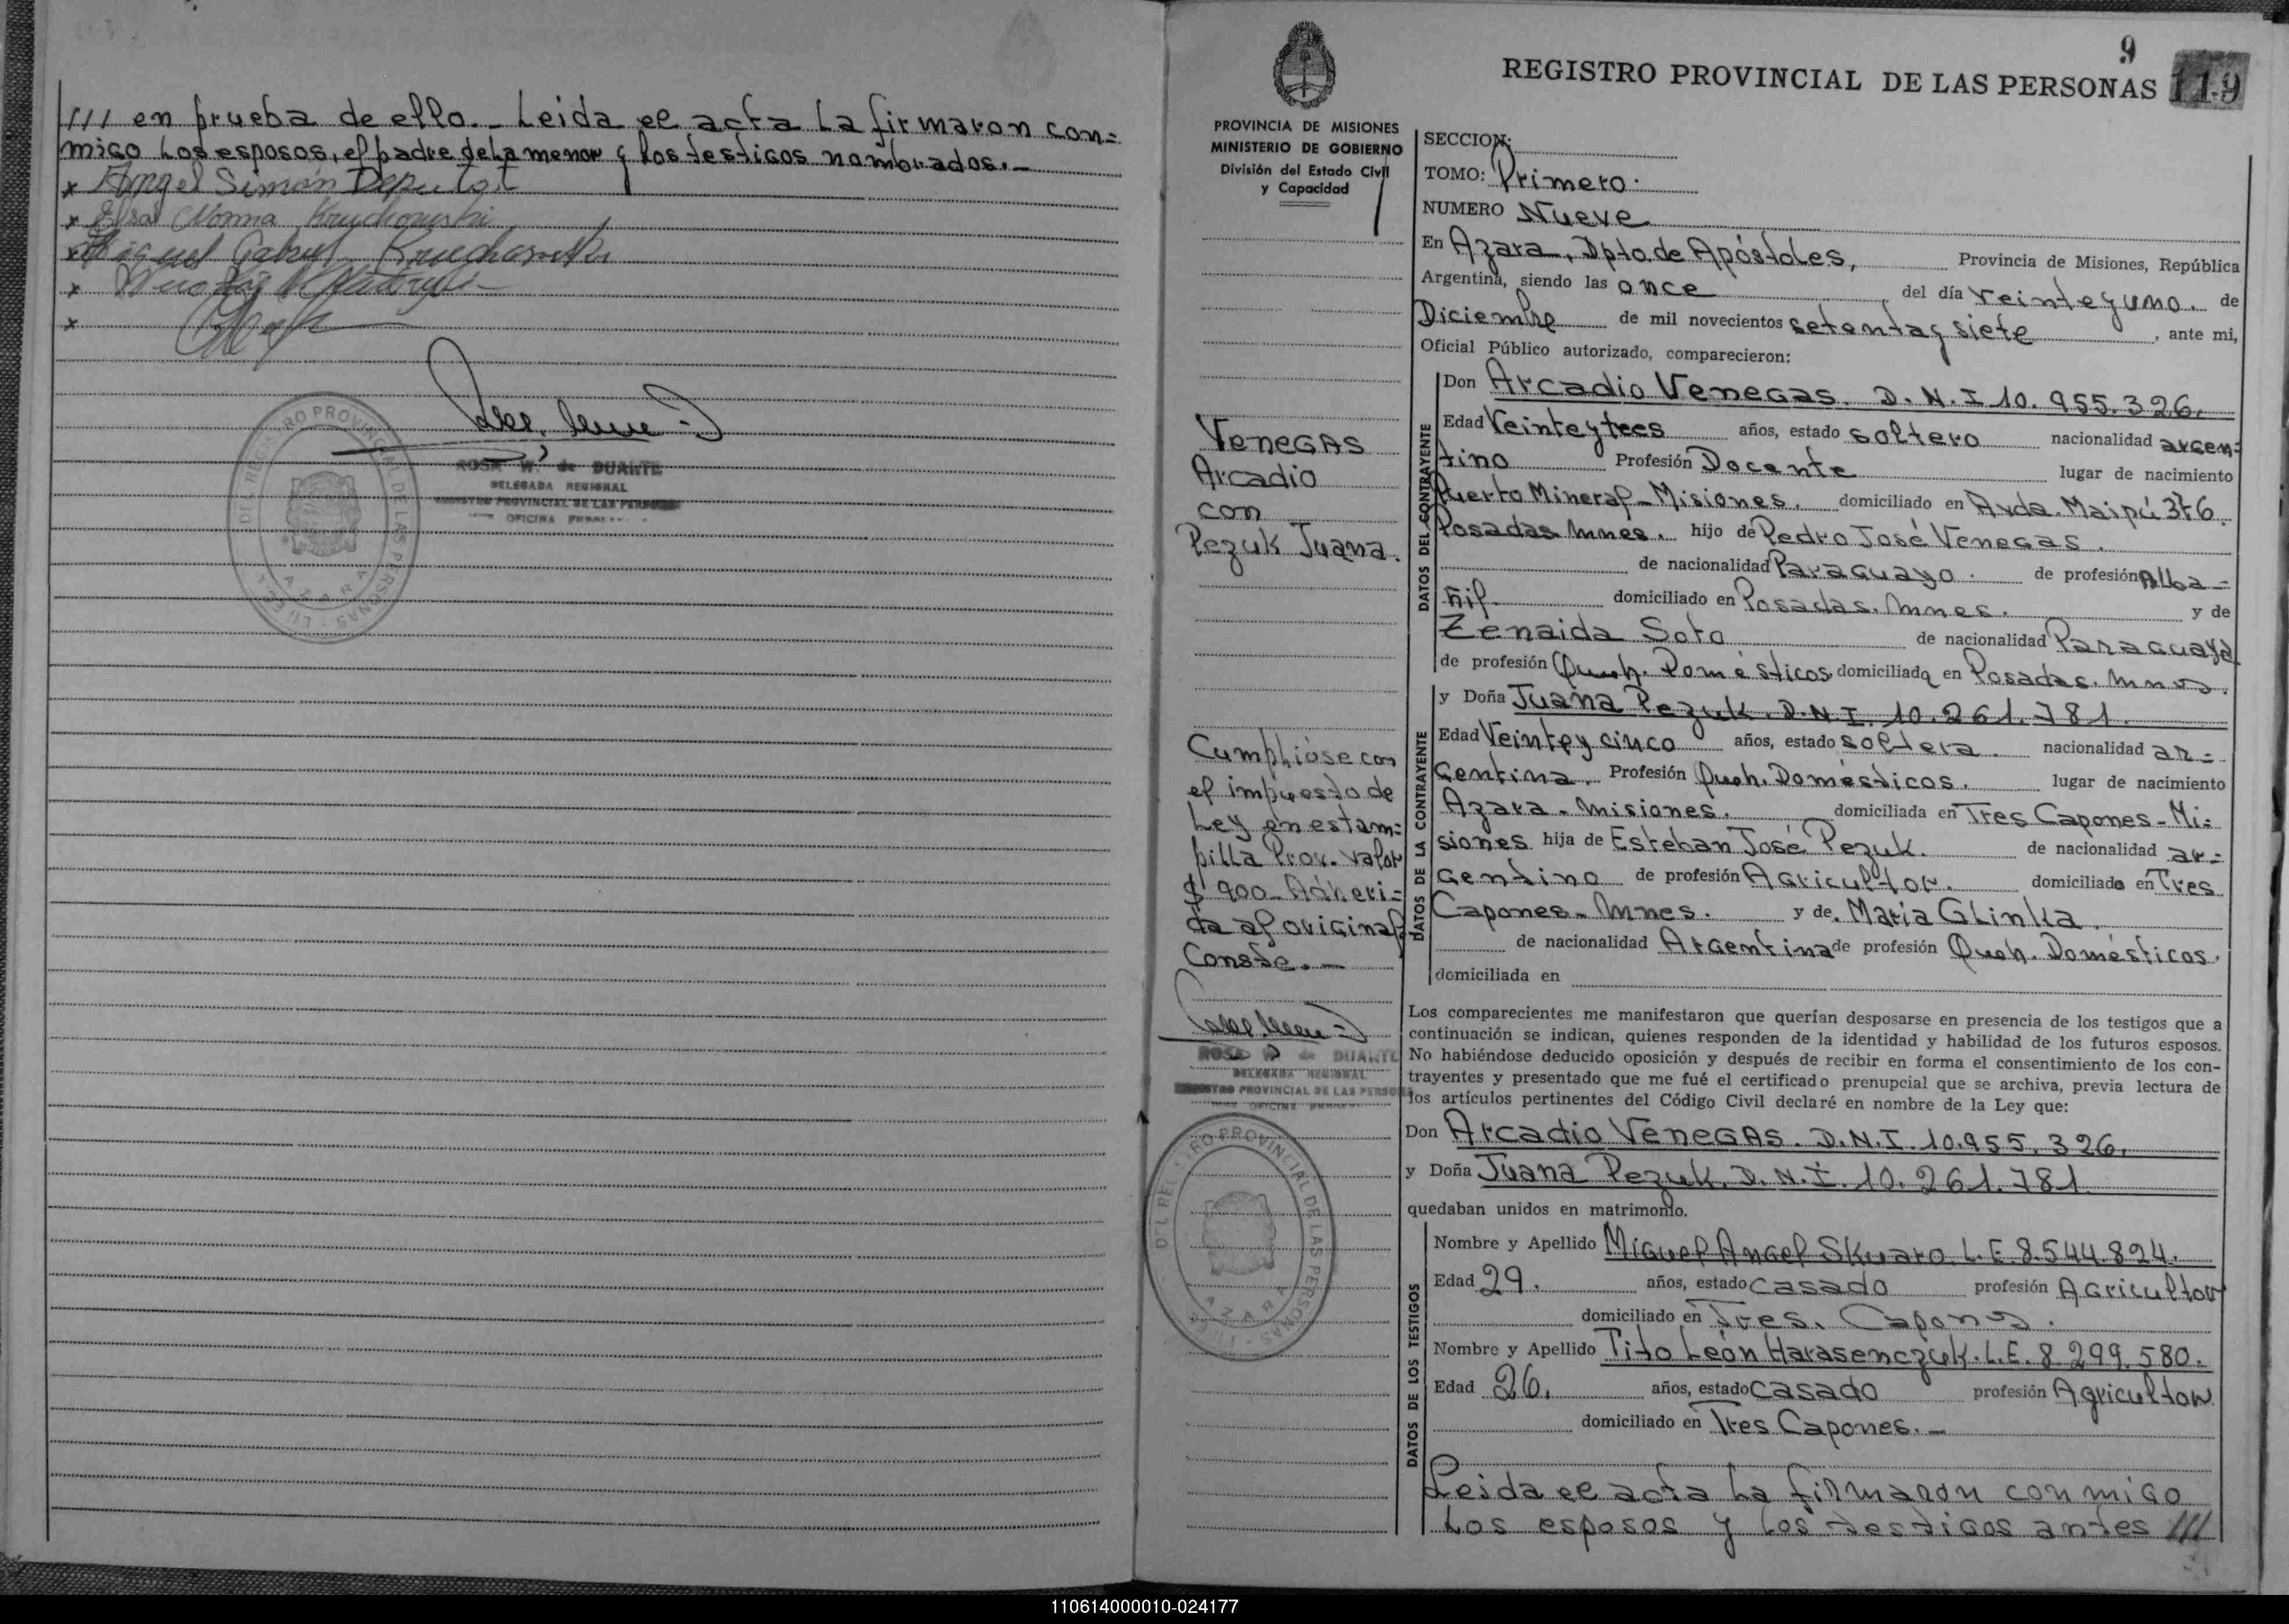 /// en prueba de ello.- Leida el acta la firmaron con=
migo los esposos, el padre de la menor y los testigos nombrados.-
x Angel Simón
x Elsa Norma Kruchowski
x Miguel Gabriel Kruchowski
x
x
DEL REGISTRO PROVINCIAL DE LAS PERSONAS
AZARA
ROSA W. de DUARTE
DELEGADA REGIONAL
REGISTRO PROVINCIAL DE LAS PERSONAS
9
REGISTRO PROVINCIAL DE LAS PERSONAS 119
PROVINCIA DE MISIONES
MINISTERIO DE GOBIERNO
División del Estado Civil
y Capacidad
Venegas
Arcadio
con
Pezuk Juana.
Cumplióse con
el impuesto de
Ley en estam=
pilla Prov. valor
$ 900- Adheri=
da al original
Conste.-
ROSA W. de DUARTE
DELEGADA REGIONAL
REGISTRO PROVINCIAL DE LAS PERSONAS
DEL REGISTRO PROVINCIAL DE LAS PERSONAS
AZARA
SECCION:
TOMO: Primero.
NUMERO Nueve
En Azara, Dpto. de Apóstoles, Provincia de Misiones, República
Argentina, siendo las once del día veinteyuno. de
Diciembre de mil novecientos setenta y siete, ante mi,
Oficial Público autorizado, comparecieron:
DATOS DEL CONTRAYENTE
Don Arcadio Venegas. D.N.I 10.955.326.
Edad Veinteytres años, estado soltero nacionalidad argen=
tino Profesión Docente lugar de nacimiento
Puerto Mineral-Misiones. domiciliado en Avda. Maipú 376.
Posadas Mnes. hijo de Pedro José Venegas.
de nacionalidad Paraguayo. de profesión Alba=
ñil. domiciliado en Posadas. Mnes. y de
Zenaida Soto de nacionalidad Paraguaya
de profesión Queh. Domésticos domiciliada en Posadas. Mnes.
DATOS DE LA CONTRAYENTE
y Doña Juana Pezuk. D.N.I. 10.261.781.
Edad Veintey cinco años, estado soltera. nacionalidad ar=
gentina. Profesión Queh. Domésticos. lugar de nacimiento
Azara-Misiones. domiciliada en Tres Capones-Mi=
siones hija de Esteban José Pezuk. de nacionalidad ar=
gentino de profesión Agricultor. domiciliado en Tres
Capones-Mnes. y de. María Glinka.
de nacionalidad Argentina de profesión Queh. Domésticos.
domiciliada en
Los comparecientes me manifestaron que querían desposarse en presencia de los testigos que a
continuación se indican, quienes responden de la identidad y habilidad de los futuros esposos.
No habiéndose deducido oposición y después de recibir en forma el consentimiento de los con-
trayentes y presentado que me fué el certificado prenupcial que se archiva, previa lectura de
los artículos pertinentes del Código Civil declaré en nombre de la Ley que:
Don Arcadio Venegas. D.N.I. 10.955.326.
y Doña Juana Pezuk. D.N.I. 10.261.781.
quedaban unidos en matrimonio.
DATOS DE LOS TESTIGOS
Nombre y Apellido Miguel Angel Skwaro. L.E. 8.544.824.
Edad 29. años, estado casado profesión Agricultor
domiciliado en Tres. Capones.
Nombre y Apellido Tito León Harasenczuk. L.E. 8.299.580.
Edad 26. años, estado casado profesión Agricultor
domiciliado en Tres Capones.-
Leida el acta la firmaron conmigo
los esposos y los testigos antes ///
110614000010-024177